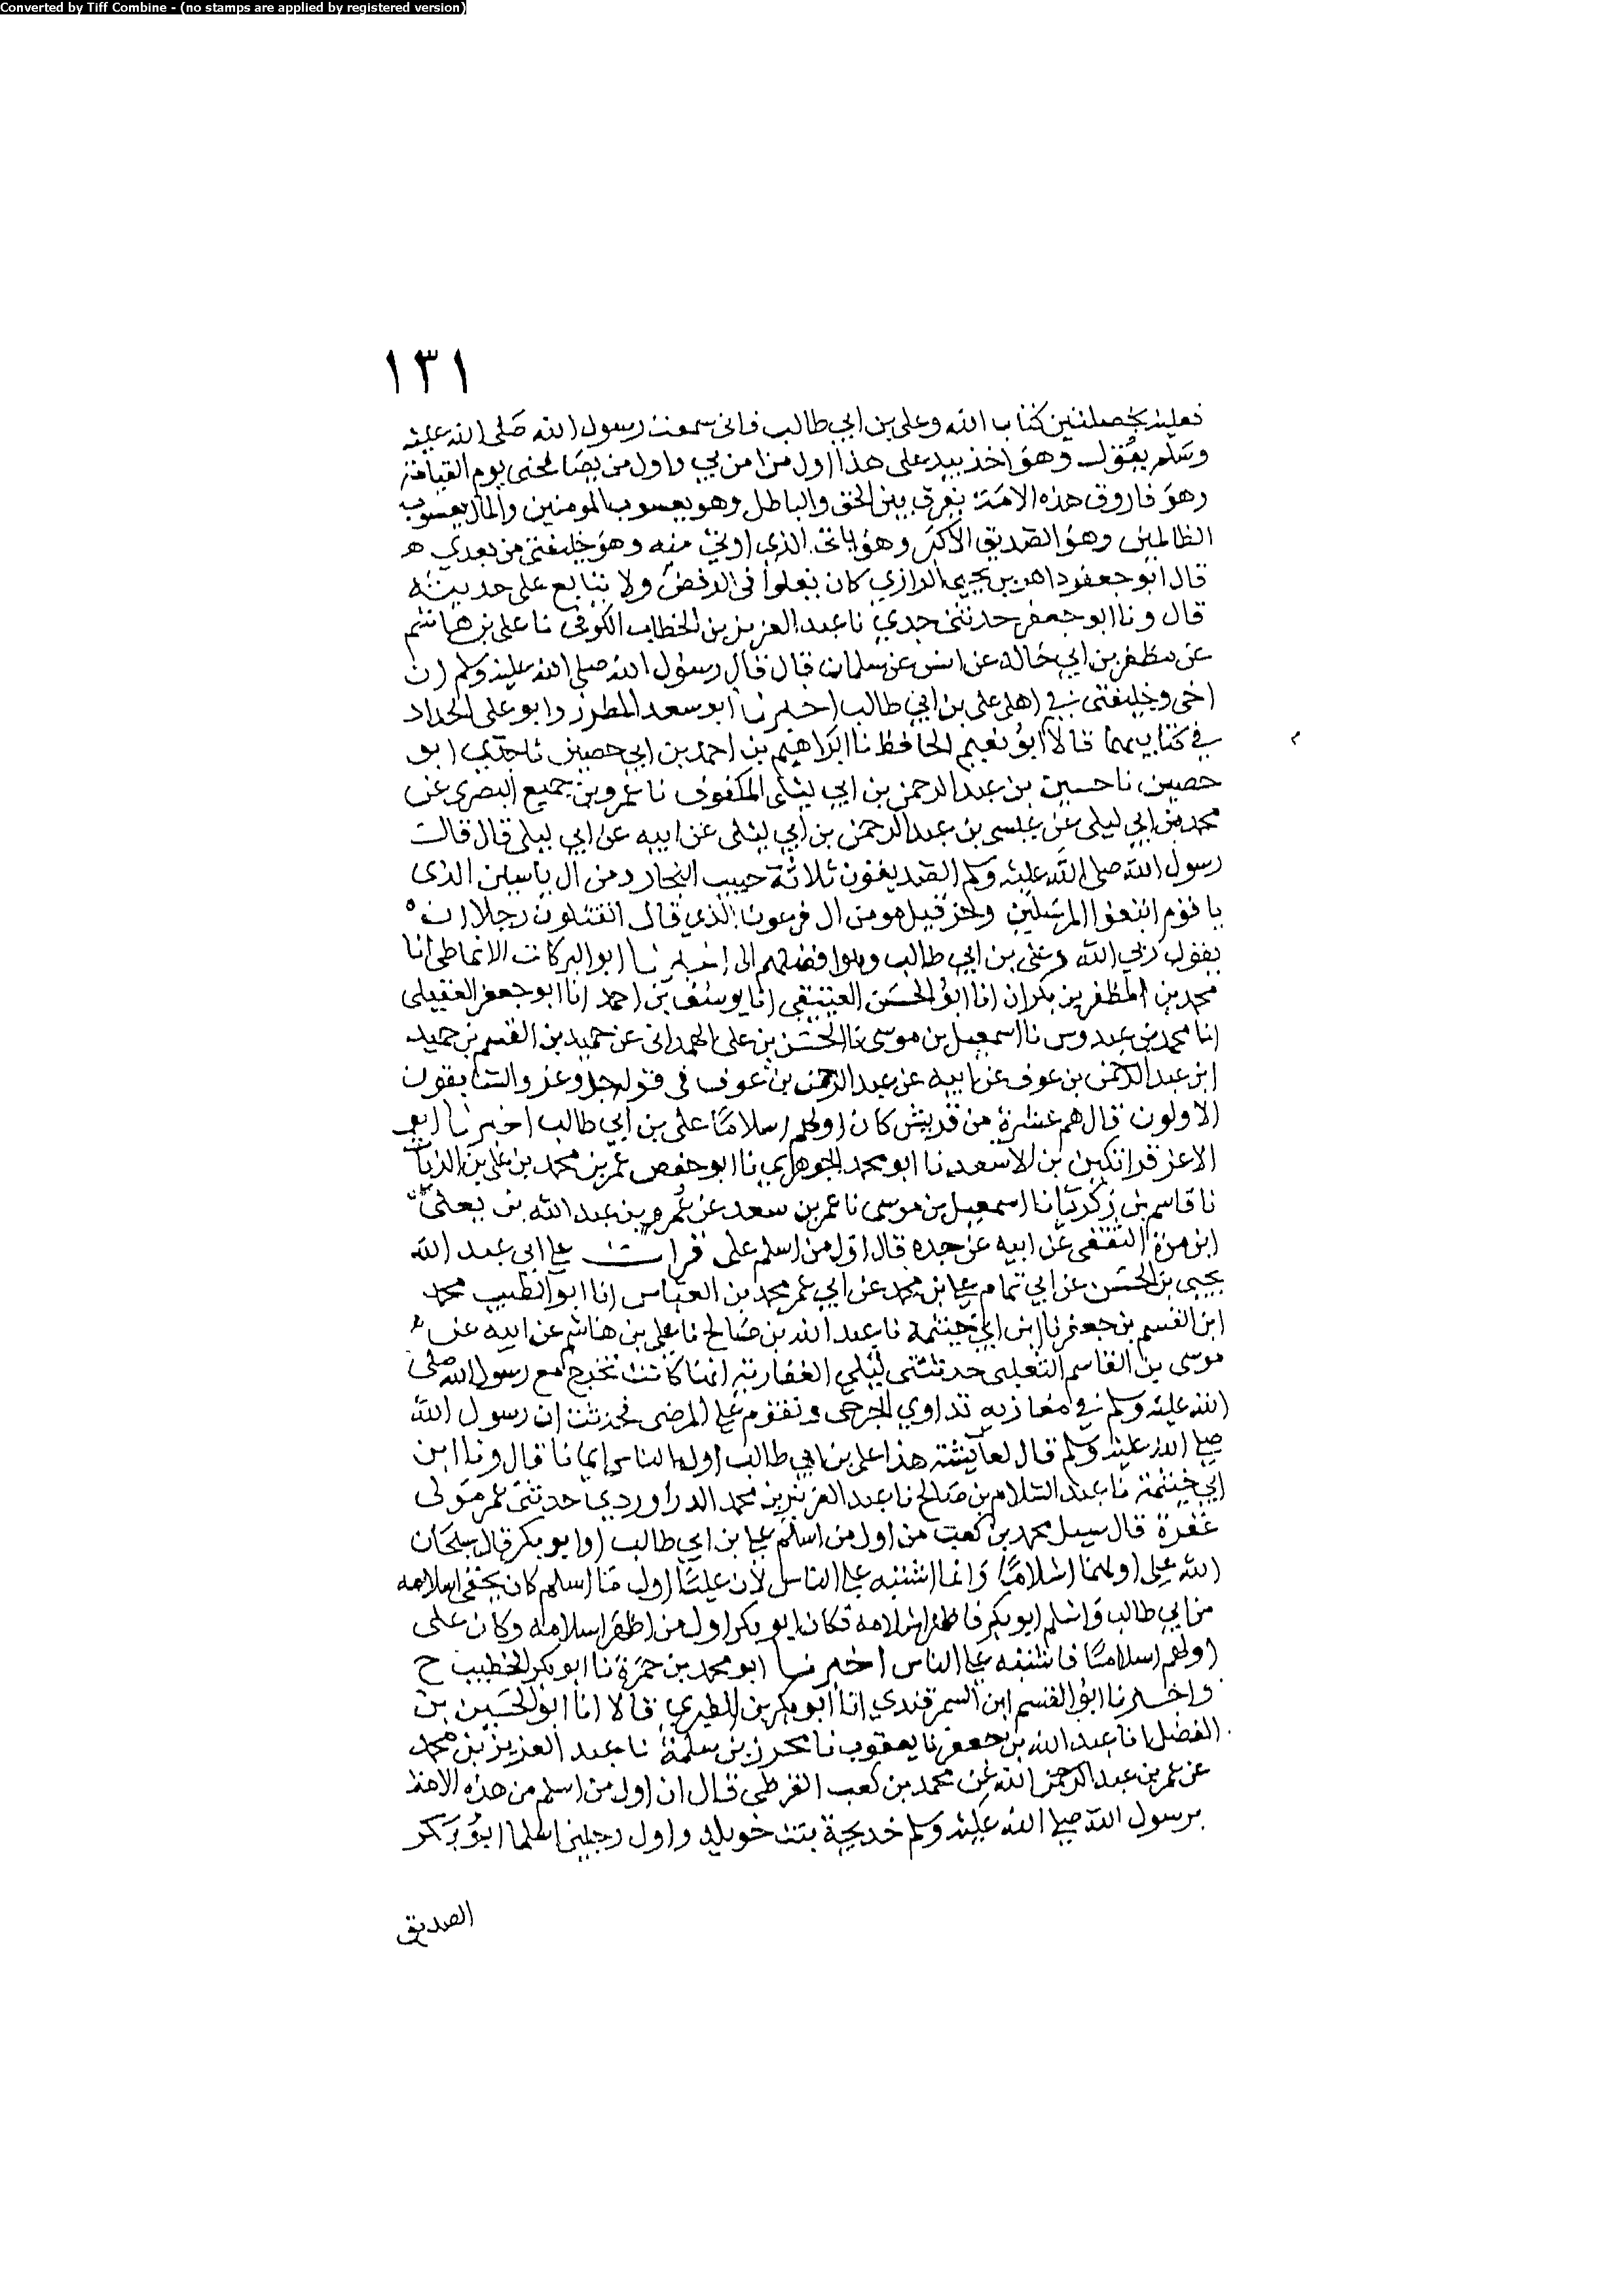 Converted by Tiff Combine - (no stamps are applied by registered version)
١٣١
فعليه بخصلتين كتاب الله وعلى بن ابي طالب فانى سمعت رسول الله صلى الله عليه
وسلم يقول وهو اخذ بيد على هذا اول من امن بي واول من يصافحنى يوم القيامة
وهو فاروق هذه الامة يفرق بين الحق والباطل وهو يعسوب المومنين والمال يعسوب
الظالمين وهو الصديق الاكبر وهو بابى الذي اوتى منه وهو خليفتى من بعدي ه
قال ابو جعفر داهر بن يحيى الرازي كان يغلوا فى الرفض ولا يتابع على حديثه
قال ونا ابو جعفر حدثنى جدي نا عبد العزيز بن الخطاب الكوفى نا على بن هاشم
عن مطر بن ابي خالد عن انس عن سلمان قال قال رسول الله صلى الله عليه وسلم ان
اخى وخليفتى في اهلى على بن ابي طالب اخبرنا ابو سعد المطرز وابو على الحداد
في كتابيهما قالا انا ابو نعيم الحافظ نا ابراهيم بن احمد بن ابي حصين نا جدي ابو
حصين نا حسين بن عبد الرحمن بن ابي ليلى المكفوف نا عمرو بن جميع البصرى عن
محمد بن ابي ليلى عن عيسى بن عبد الرحمن بن ابي ليلى عن ابيه عن ابي ليلى قال قال
رسول الله صلى الله عليه وسلم الصديقون ثلاثة حبيب النجار من ال ياسين الذى
يا قوم اتبعوا المرسلين وحزقيل مومن ال فرعون الذي قال اتقتلون رجلا ان
يقول ربي الله وعلى بن ابي طالب وهوا فضلهم الى اخبرنا ابو البركات الانماطى انا
محمد بن المظفر بن بكران انا ابو الحسن العتيقي انا يوسف بن احمد انا ابو جعفر العقيلى
انا محمد بن عبدوس نا اسمعيل بن موسى نا الحسن بن على الهمدانى عن حميد بن القسم بن حميد
ابن عبد الرحمن بن عوف عن ابيه عن عبد الرحمن بن عوف فى قوله جل وعز والسابقون
الاولون قال هم عشرة من قريش كان اولهم اسلاما على بن ابي طالب اخبرنا ابو
الاعز قراتكين بن الاسعد نا ابو محمد الجوهري نا ابو حفص عمر بن محمد بن على بن الزيات
نا قاسم بن زكريا نا اسمعيل بن موسى نا عمر بن سعد عن عمر بن عبد الله بن يعلى
ابن مرة الثقفى عن ابيه عن جده قال اول من اسلم على قرات على ابى عبد الله
يحيى بن الحسن عن ابي تمام على بن محمد عن ابي عمر محمد بن العباس انا ابو الطيب محمد
ابن القسم بن جعفر نا ابن ابي خيثمة نا عبد الله بن صالح نا على بن هاشم عن ابيه عن
موسى بن القاسم التغلبى حدثتنى ليلى الغفارية انها كانت تخرج مع رسول الله صلى
الله عليه وسلم في مغازيه تداوي الجرحى وتقوم على المرضى فحدثت ان رسول الله
صلى الله عليه وسلم قال لعايشة هذا على بن ابي طالب اول الناس ايمانا قال ونا ابن
ابي خيثمة نا عبد السلام بن صالح نا عبد العزيز بن محمد الدراوردي حدثنى عمر مولى
غفرة قال سيل محمد بن كعب من اول من اسلم على بن ابي طالب او ابو بكر قال سبحان
الله على اولهما اسلاما وانما اشتبه على الناس لان عليا اول ما اسلم كان يخفى اسلامه
من ابي طالب واسلم ابو بكر فاظهر اسلامه فكان ابو بكر اول من اظهر اسلامه وكان على
اولهم اسلاما فاشتبه على الناس اخبرنا ابو محمد بن حمزة نا ابو بكر الخطيب ح
واخبرنا ابو القسم ابن السمرقندي انا ابو بكر بن الطبري قالا انا ابو الحسين بن
الفضل انا عبد الله بن جعفر نا يعقوب نا محرز بن سلمة نا عبد العزيز بن محمد
عن عمر بن عبد الله عن محمد بن كعب القرظى قال ان اول من اسلم من هذه الامة
برسول الله صلى الله عليه وسلم خديجة بنت خويلد واول رجلين اسلما ابو بكر
الصديق